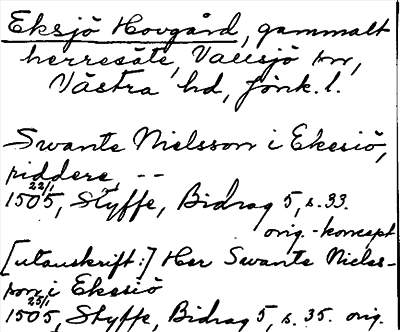 Eksjö Hovgård, gammalt
herresäte, Vallsjö sn,
Västra hd, Jönk. l.
Swante Nielsson i Ekesiö,
riddere --
1505 22/1, Styffe, Bidrag 5, s. 33.
orig.-koncept
[utanskrift:] Her Swante Niels-
son i Ekesiö
1505 25/1, Styffe, Bidrag 5, s. 35. orig.